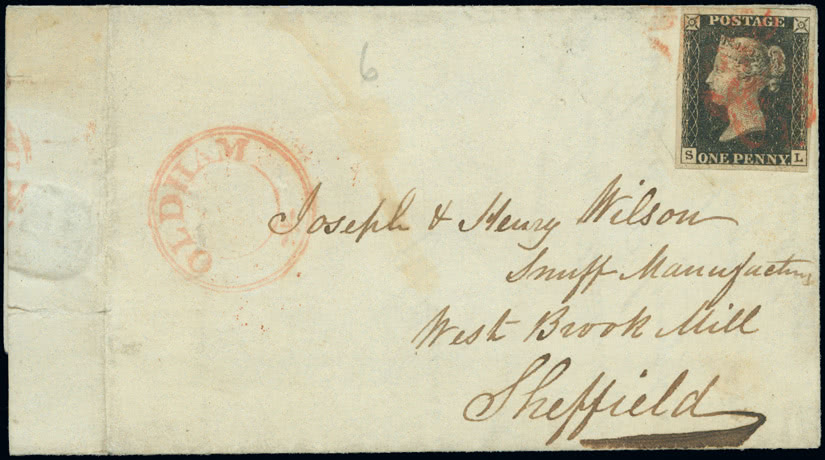 6
POSTAGE
S ONE PENNY L
OLDHAM
Joseph & Henry Wilson
Snuff Manufacturers
West Brook Mill
Sheffield